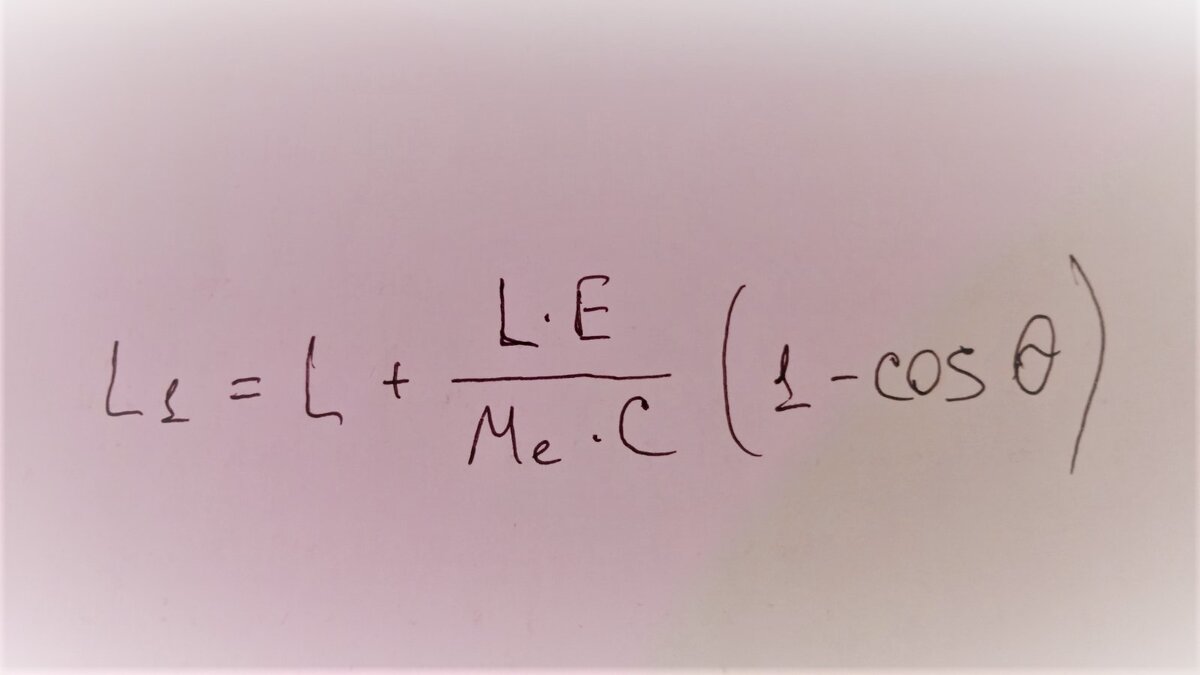 L₁ = L + \frac{L · E}{M_e · C} (1 - cos θ)